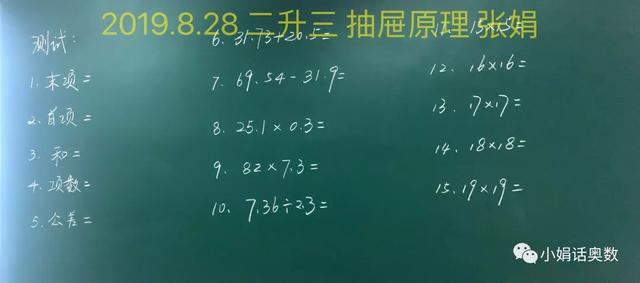 2019.8.28 二升三 抽屉原理 张娟
测试:
1. 末项=
2. 首项=
3. 和=
4. 项数=
5. 公差=
6. 31.73+20.5=
7. 69.54-31.9=
8. 25.1×0.3=
9. 82×7.3=
10. 7.36÷2.3=
11. 15×15=
12. 16×16=
13. 17×17=
14. 18×18=
15. 19×19=
小娟话奥数